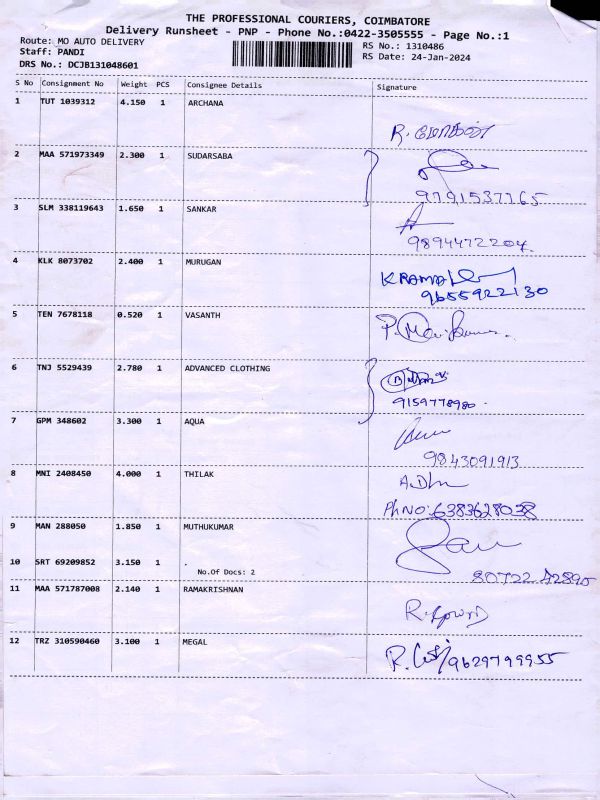 THE PROFESSIONAL COURIERS, COIMBATORE
Delivery Runsheet - PNP - Phone No.:0422-3505555 - Page No.:1
Route: MO AUTO DELIVERY
RS No.: 1310486
Staff: PANDI
RS Date: 24-Jan-2024
DRS No.: DCJB131048601
S No Consignment No Weight PCS Consignee Details Signature
1 TUT 1039312 4.150 1 ARCHANA
R.
2 MAA 571973349 2.300 1 SUDARSABA
9791537765
3 SLM 338119643 1.650 1 SANKAR
9894472204.
4 KLK 8073702 2.400 1 MURUGAN
9655922130
5 TEN 7678118 0.520 1 VASANTH
6 TNJ 5529439 2.780 1 ADVANCED CLOTHING
9159778980
7 GPM 348602 3.300 1 AQUA
9843091913
8 MNI 2408450 4.000 1 THILAK
Ph NO: 6383628038
9 MAN 288050 1.850 1 MUTHUKUMAR
10 SRT 69209852 3.150 1 .
No.Of Docs: 2
80722 42895
11 MAA 571787008 2.140 1 RAMAKRISHNAN
12 TRZ 310590460 3.100 1 MEGAL
9629799955